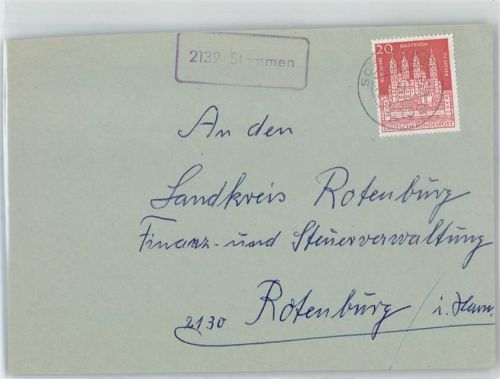 2139 Stemmen
20
KAISERDOM
DEUTSCHE BUNDESPOST
An den
Landkreis Rotenburg
Finanz- und Steuerverwaltung
2130 Rotenburg / i. Hann.